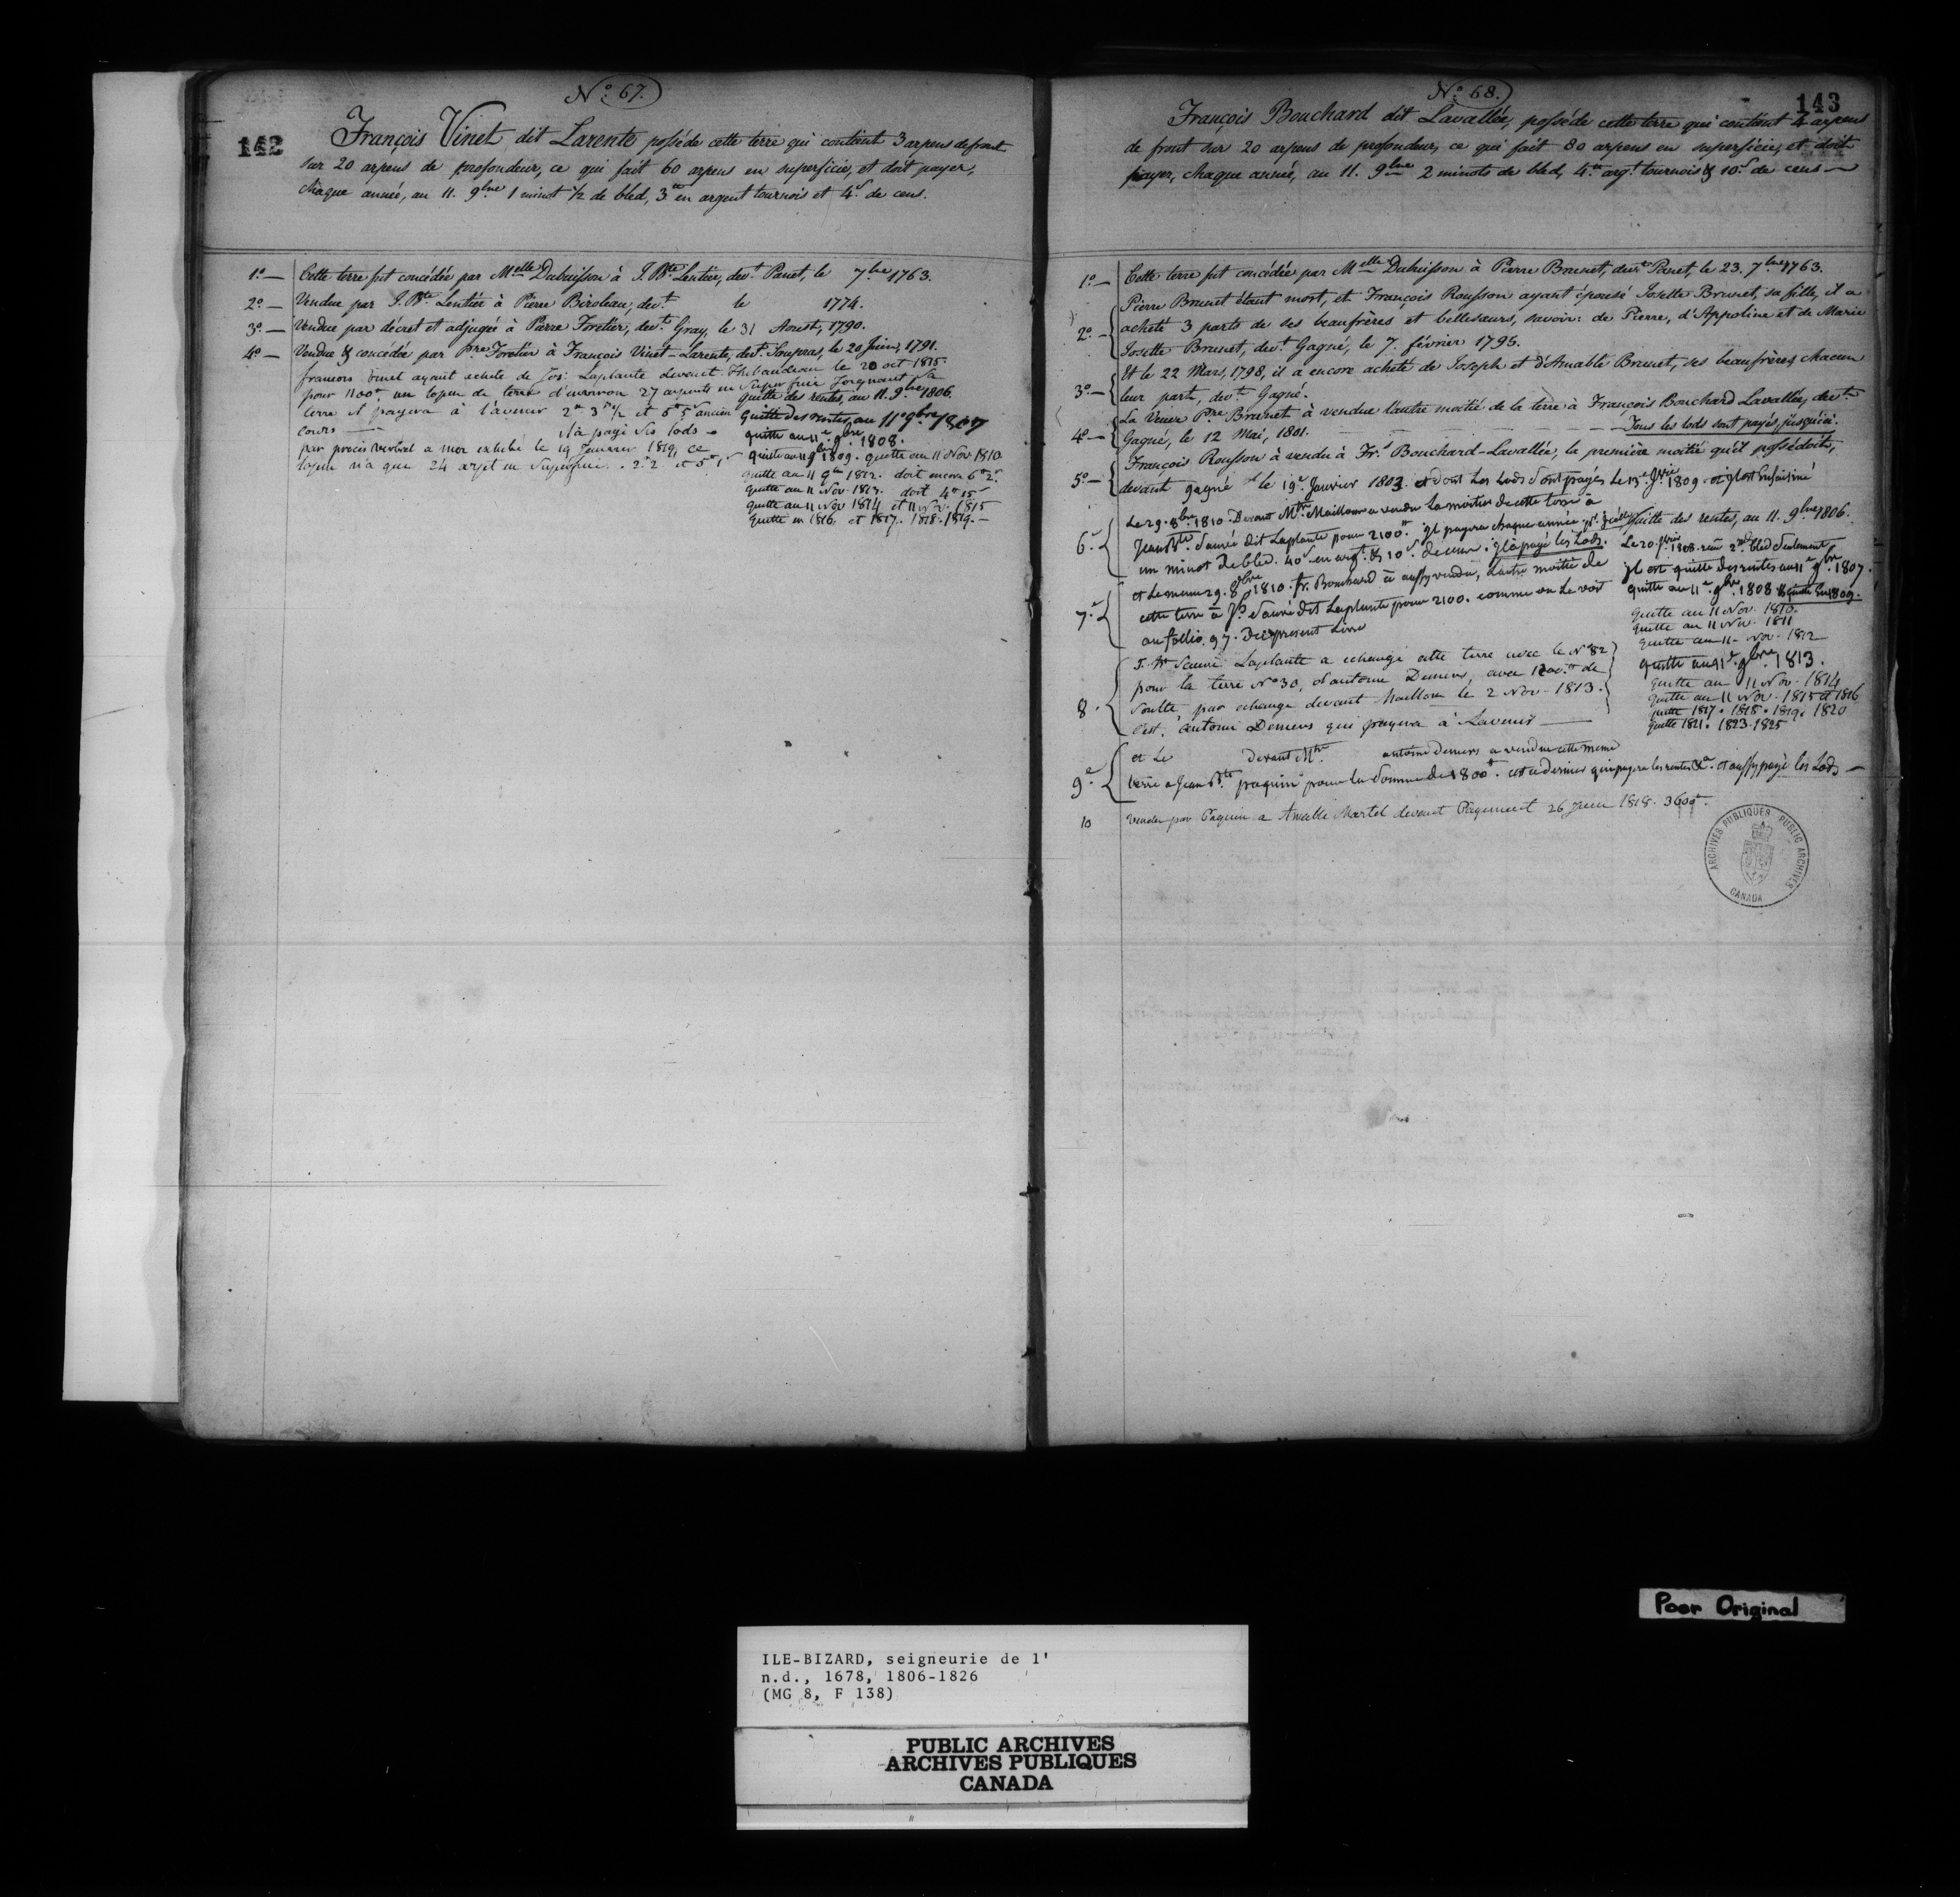 142
N.º 67.
François Vinet dit Larente possède cette terre qui contient 3 arpens de front
sur 20 arpens de profondeur, ce qui fait 60 arpens en superficie, et doit payer,
chaque année, au 11. 9bre 1 minot ½ de bled, 3tt en argent tournois et 4s de cens.
1º — Cette terre fut concédée par Melle Dubuisson à J. Bte Lentier, devt Panet, le 7bre 1763.
2º — Vendue par J. Bte Lentier à Pierre Biroleau, devt le 1774.
3º — Vendue par décret et adjugée à Pierre Foretier, devt Gray, le 31 Aoust, 1790.
4º — Vendue & concédée par Pre Foretier à François Vinet-Larente, devt Soupras, le 20 Juin, 1791.
francois Vinet ayant acheté de Jos: Laplante devant Thibaudeau le 20 oct 1815
pour 1100tt un lopin de terre d'environ 27 arpents en Superficie Joignant Sa
terre il payera à l'avenir 2m 3 ½ et 5tt 5s ancien
cours —
il a payé Ses lods —
par procès verbal a moi exhibé le 19 Janvier 1819, ce
lopin n'a que 24 arpt en Superficie.
quitte des rentes, au 11. 9bre 1806.
Quitte Des rentes au 11e 9bre 1807
quitte au 11e 9bre 1808.
quitte au 11 9bre 1809. quitte au 11 Nov 1810
quitte au 11 9bre 1812. doit encore 6tt 2s
quitte au 11 Nov. 1813. doit 4tt 15s
quitte au 11 Nov 1814 et 11 Nov. 1815
Quitte en 1816 et 1817. 1818. 1819. —
143
N.º 68.
François Bouchard dit Lavallée, possède cette terre qui contient 4 arpens
de front sur 20 arpens de profondeur, ce qui fait 80 arpens en superficie, et doit
payer, chaque année, au 11. 9bre 2 minots de bled, 4tt argt tournois & 10s de cens —
1º — Cette terre fut concédée par Melle Dubuisson à Pierre Brunet, devt Panet, le 23. 7bre 1763.
2º — Pierre Brunet étant mort, et François Rousson ayant épousé Josette Brunet, sa fille, il a
acheté 3 parts de ses beaufrères et bellesœurs, savoir: de Pierre, d'Appoline et de Marie
Josette Brunet, devt Gagné, le 7. février 1795.
3º — Et le 22 Mars, 1798, il a encore acheté de Joseph et d'Amable Brunet, ses beaufrères, chacun
leur part, devt Gagné.
4º — La Veuve Pre Brunet à vendue l'autre moitié de la terre à François Bouchard Lavallée, devt
Gagné, le 12 Mai, 1801. — — — Tous les lods sont payés, jusqu'ici.
5º — François Rousson à vendu à Frs Bouchard-Lavallée, la première moitié qu'il possédoit,
devant gagné le 19e Janvier 1803. et dont Les Lods Sont payés
6e Le 29. 8bre 1810. Devant Mtre Mailloux a vendu La moitier de cette terre à
Jean Bte Sauvé dit Laplante pour 2100tt. jl payera chaque année
un minot de bled. 40s en argt & 10s de cens. jl a payé les Lods.
7e et Le meme 29. 8bre 1810. fr. Bouchard à aussy vendu, Lautre moitié de
cette terre à Js Sauvé dit Laplante pour 2100. comme on Le voit
au follio. 97. De ce present Livre
Quitte des rentes, au 11. 9bre 1806.
jl est quitte des rentes au 11e 9bre 1807.
quitte au 11e 9bre 1808 & quitte En 1809.
Quitte au 11 Nov. 1810.
Quitte au 11 Nov. 1811
Quitte au 11 Nov. 1812
quitte au 11e 9bre 1813.
Quitte au 11 Nov. 1814
Quitte au 11 Nov. 1815 et 1816
quitte 1817. 1818. 1819. 1820
quitte 1821. 1823. 1825
8. J. Bte Sauvé Laplante a echangé cette terre avec le Nº 82
pour la terre Nº 30, d'antoine Demers, avec de
Soulte par echange devant Mailloux le 2 Nov. 1813.
C'est, antoine Demers qui payera à L'avenir —
9e et Le devant Mtre antoine Demers a vendu cette meme
terre a Jean Bte paquin pour la Somme de 1800tt. cest ce dernier qui payera les rentes &a. et aussy payé les Lods —
10 Vendu par Paquin a Amable Martel devant Payement 26 Juin 1818. 3600tt.
ARCHIVES PUBLIQUES PUBLIC ARCHIVES
CANADA
Poor Original
ILE-BIZARD, seigneurie de l'
n.d., 1678, 1806-1826
(MG 8, F 138)
PUBLIC ARCHIVES
ARCHIVES PUBLIQUES
CANADA